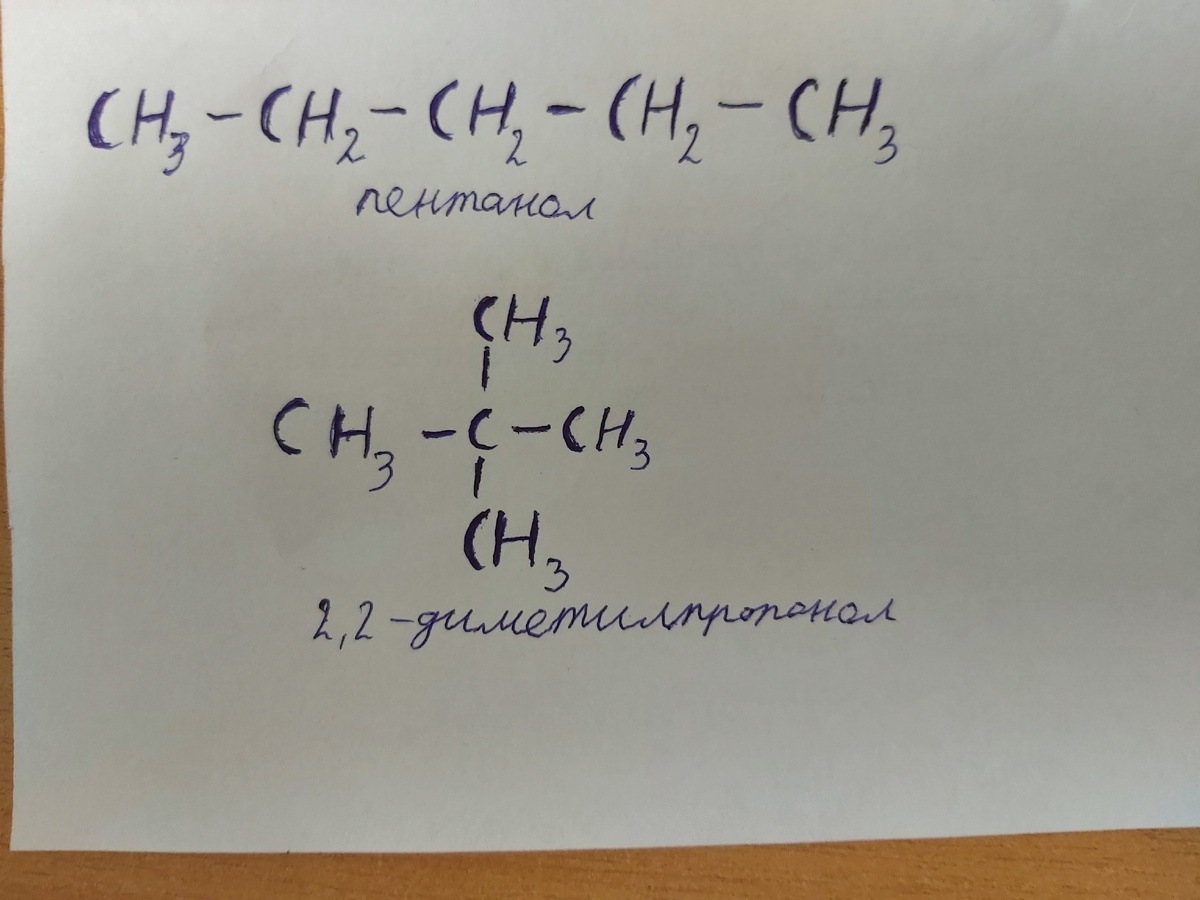 CH₃ – CH₂ – CH₂ – CH₂ – CH₃
пентанол
CH₃
|
CH₃ – C – CH₃
|
CH₃
2,2-диметилпропанол